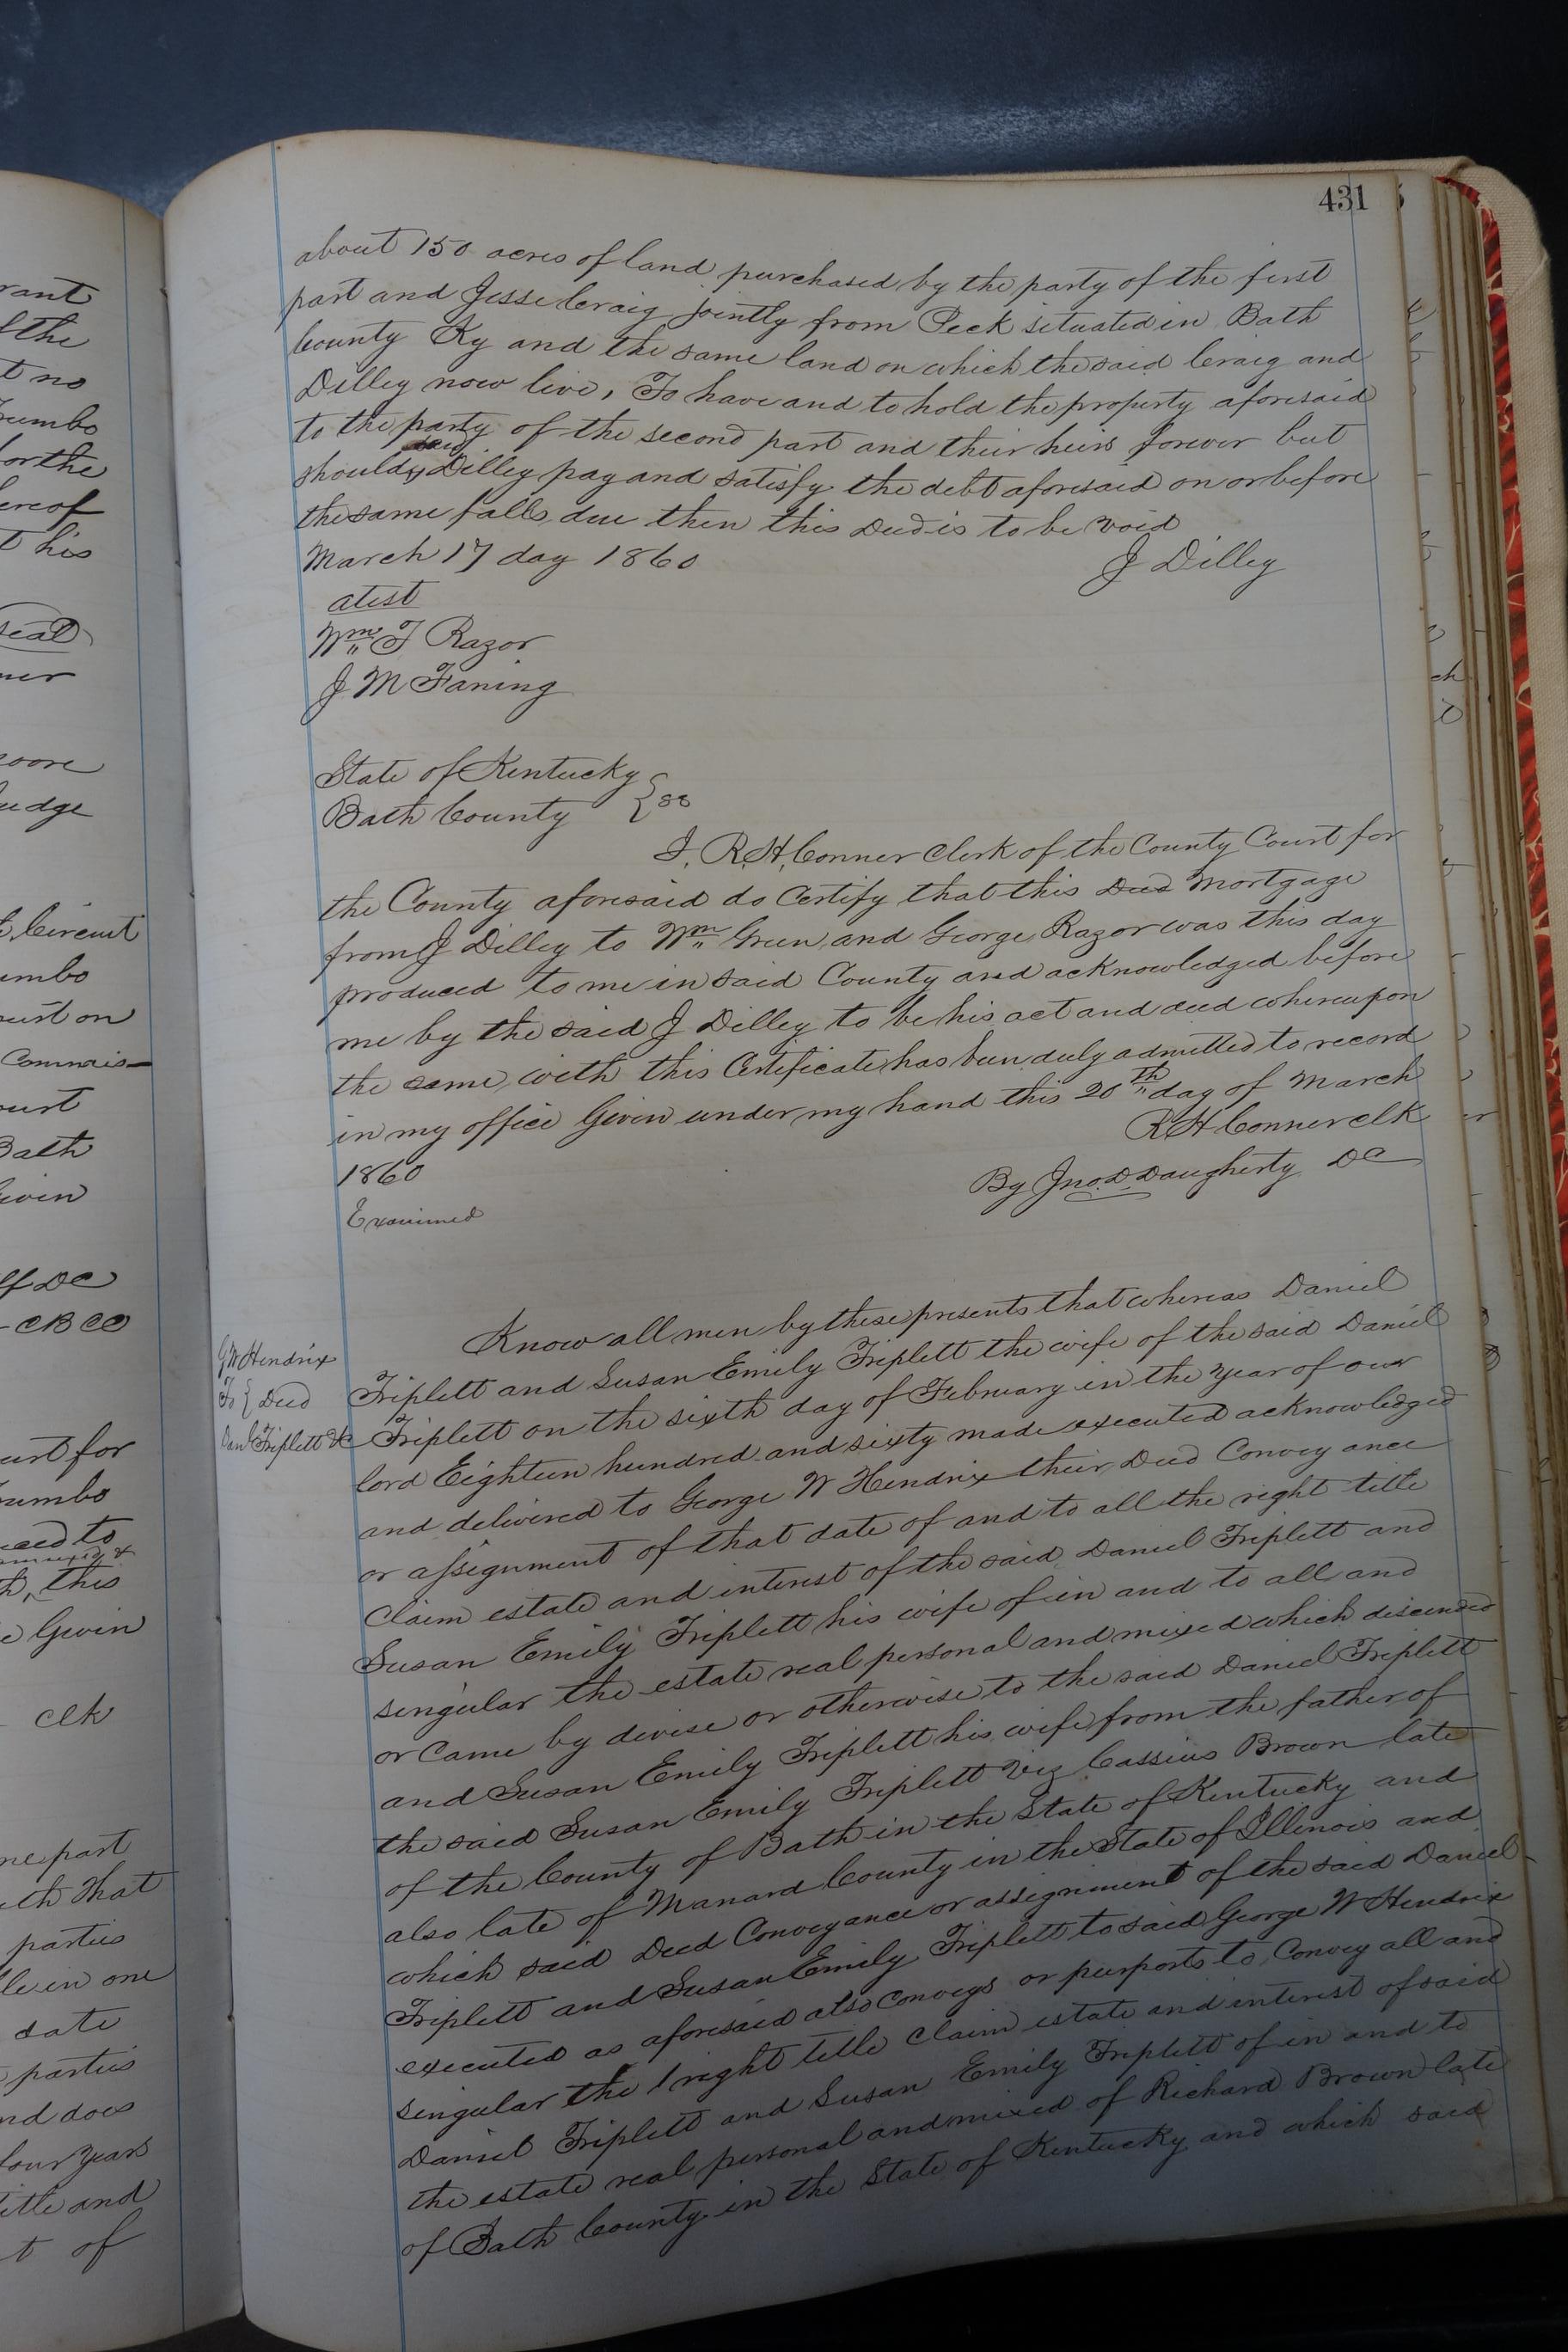 431
about 150 acres of land purchased by the party of the first
part and Jesse Craig jointly from Peck situated in Bath
County Ky and the same land on which the said Craig and
Dilley now live, To have and to hold the property aforesaid
to the party of the second part and their heirs forever but
said
should Dilley pay and satisfy the debt aforesaid on or before
the same falls due then this Deed is to be void
March 17 day 1860 J Dilley
atest
Wm F Razor
J M Faning
State of Kentucky
Bath County } ss
I, R.H. Conner Clerk of the County Court for
the County aforesaid do Certify that this Deed Mortgage
from J Dilley to Wm Green and George Razor was this day
produced to me in said County and acknowledged before
me by the said J Dilley to be his act and deed whereupon
the same with this Certificate has been duly admitted to record
in my office Given under my hand this 20th day of March
1860 R H Conner clk
By Jno. D. Daugherty DC
Examined
G W Hendrix
To } Deed
Danl Triplett &c
Know all men by these presents that whereas Daniel
Triplett and Susan Emily Triplett the wife of the said Daniel
Triplett on the sixth day of February in the Year of our
lord Eighteen hundred and sixty made executed acknowledged
and delivered to George W Hendrix their Deed Convey ance
or assignment of that date of and to all the right title
Claim estate and interest of the said Daniel Triplett and
Susan Emily Triplett his wife of in and to all and
singular the estate real personal and mixed which discended
or Came by devise or otherwise to the said Daniel Triplett
and Susan Emily Triplett his wife from the father of
the said Susan Emily Triplett Viz Cassius Brown late
of the County of Bath in the State of Kentucky and
also late of Manard County in the State of Illinois and
which said Deed Conveyance or assignment of the said Daniel
Triplett and Susan Emily Triplett to said George W Hendrix
executed as aforesaid also Conveys or purports to Convey all and
singular the right title Claim estate and interest of said
Daniel Triplett and Susan Emily Triplett of in and to
the estate real personal and mixed of Richard Brown late
of Bath County in the State of Kentucky and which said